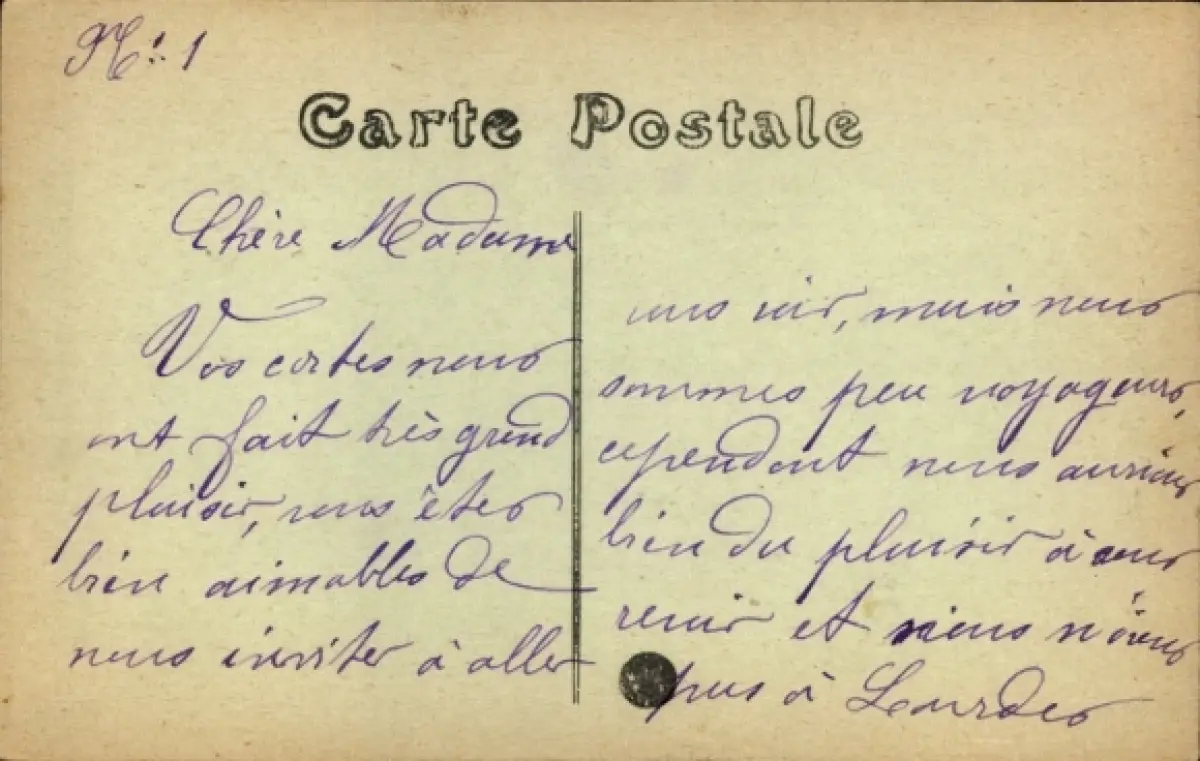 N° 1
Carte Postale
Chère Madame
Vos cartes nous
ont fait très grand
plaisir, vous êtes
bien aimables de
nous inviter à aller
vous voir, mais nous
sommes peu voyageurs,
cependant nous aurions
bien du plaisir à vous
revoir et
pas à Lourdes